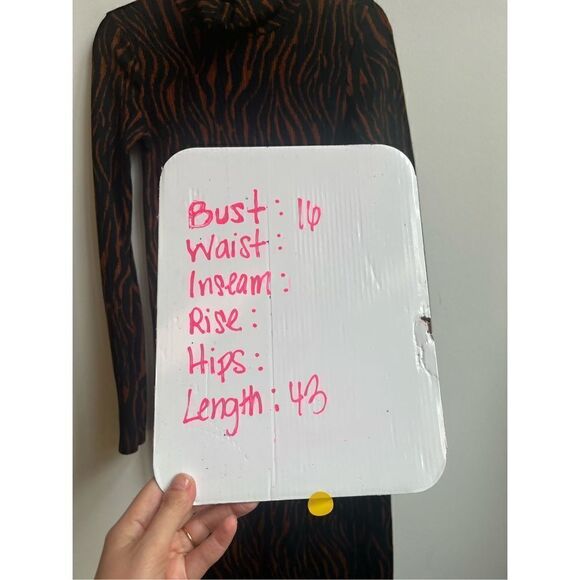 Bust: 16
Waist:
Inseam:
Rise:
Hips:
Length: 43